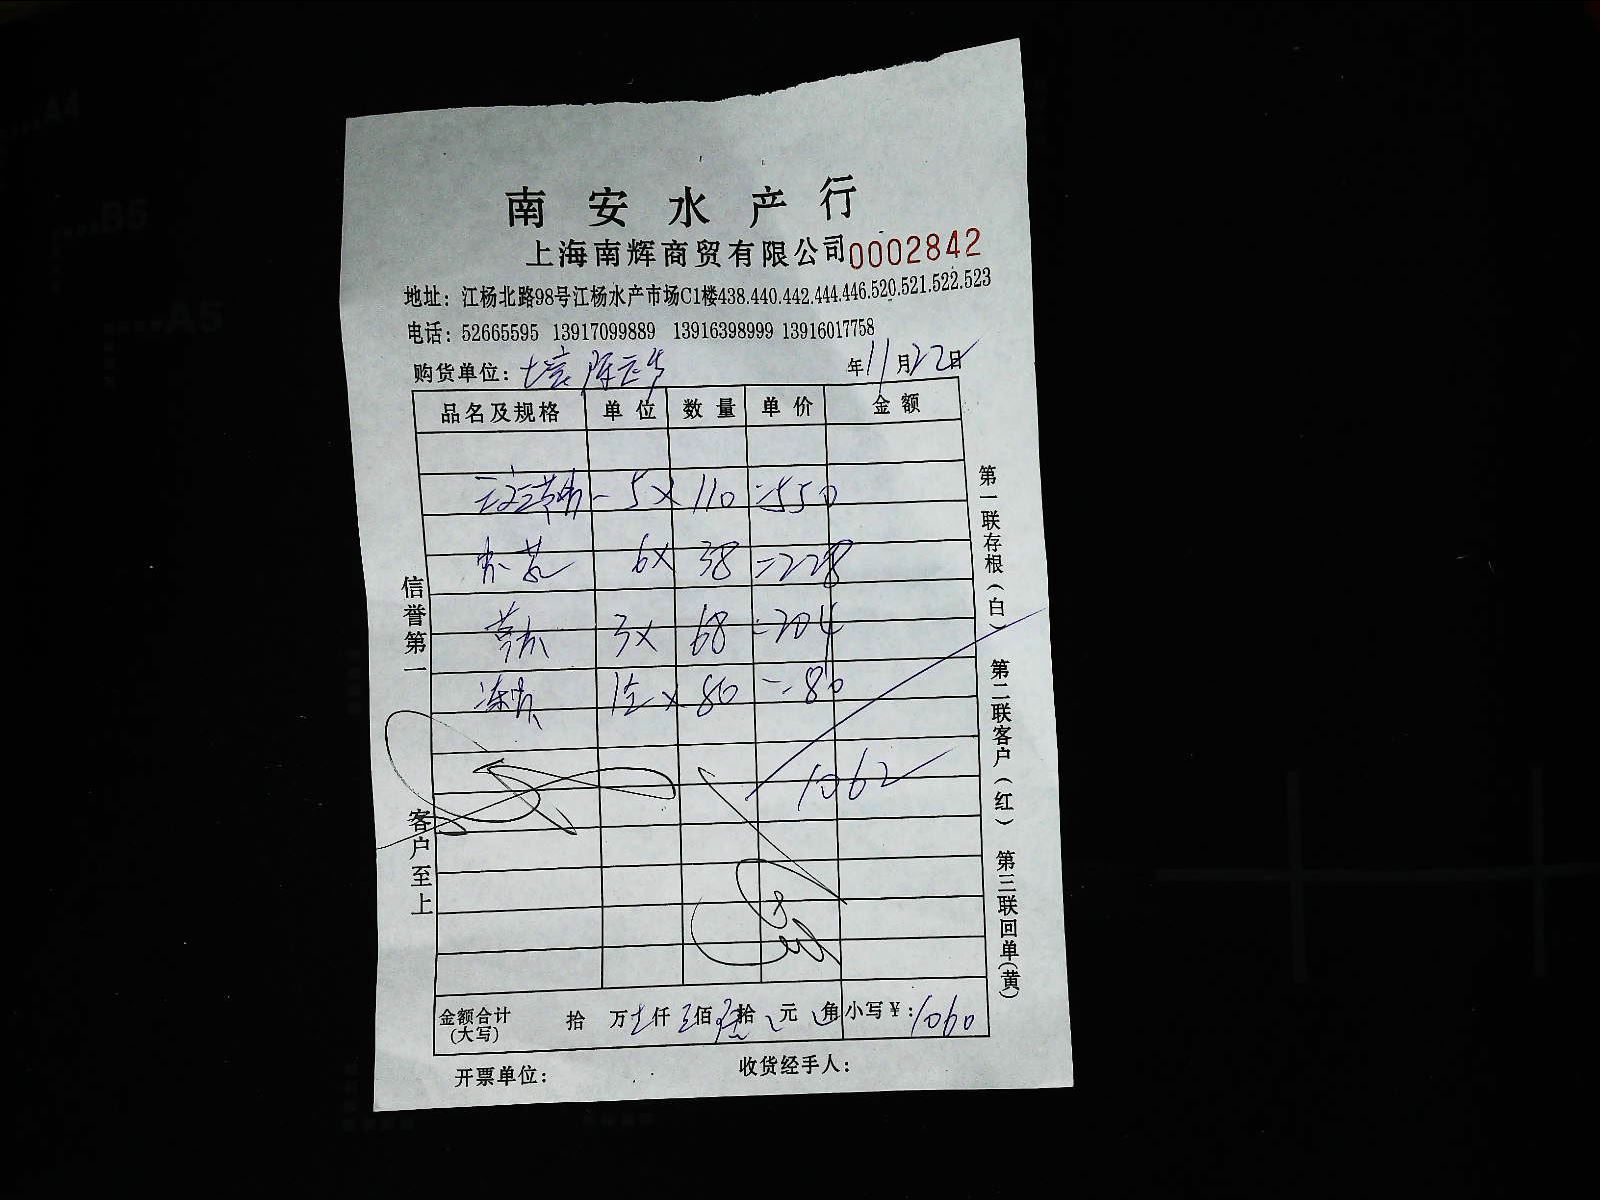 南安水产行
上海南辉商贸有限公司 0002842
地址：江杨北路98号江杨水产市场C1楼438.440.442.444.446.520.521.522.523
电话：52665595 13917099889 13916398999 13916017758
购货单位： 年11月22日
品名及规格 单位 数量 单价 金额
5× 110 =550
6× 38 =228
3× 68 =204
冻 1 × 80 =80
1062
金额合计(大写) 拾 万 仟 佰 拾 元 角 小写￥：1060
开票单位： 收货经手人：
信誉第一 客户至上
第一联存根(白) 第二联客户(红) 第三联回单(黄)
A4
B5
A5